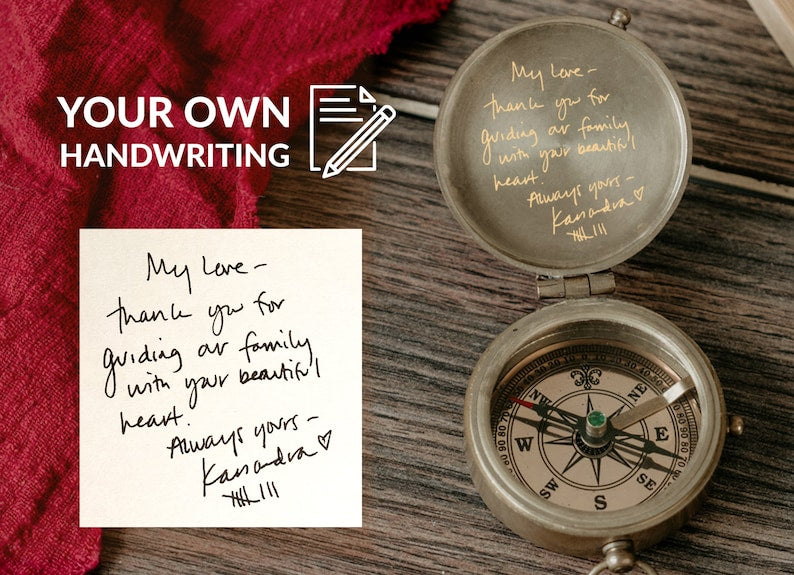 YOUR OWN
HANDWRITING
My Love –
thank you for
guiding our family
with your beautiful
heart.
Always yours –
Kassandra ♡
My Love –
thank you for
guiding our family
with your beautiful
heart.
Always yours –
Kassandra ♡
NW
NE
W
E
SW
SE
S